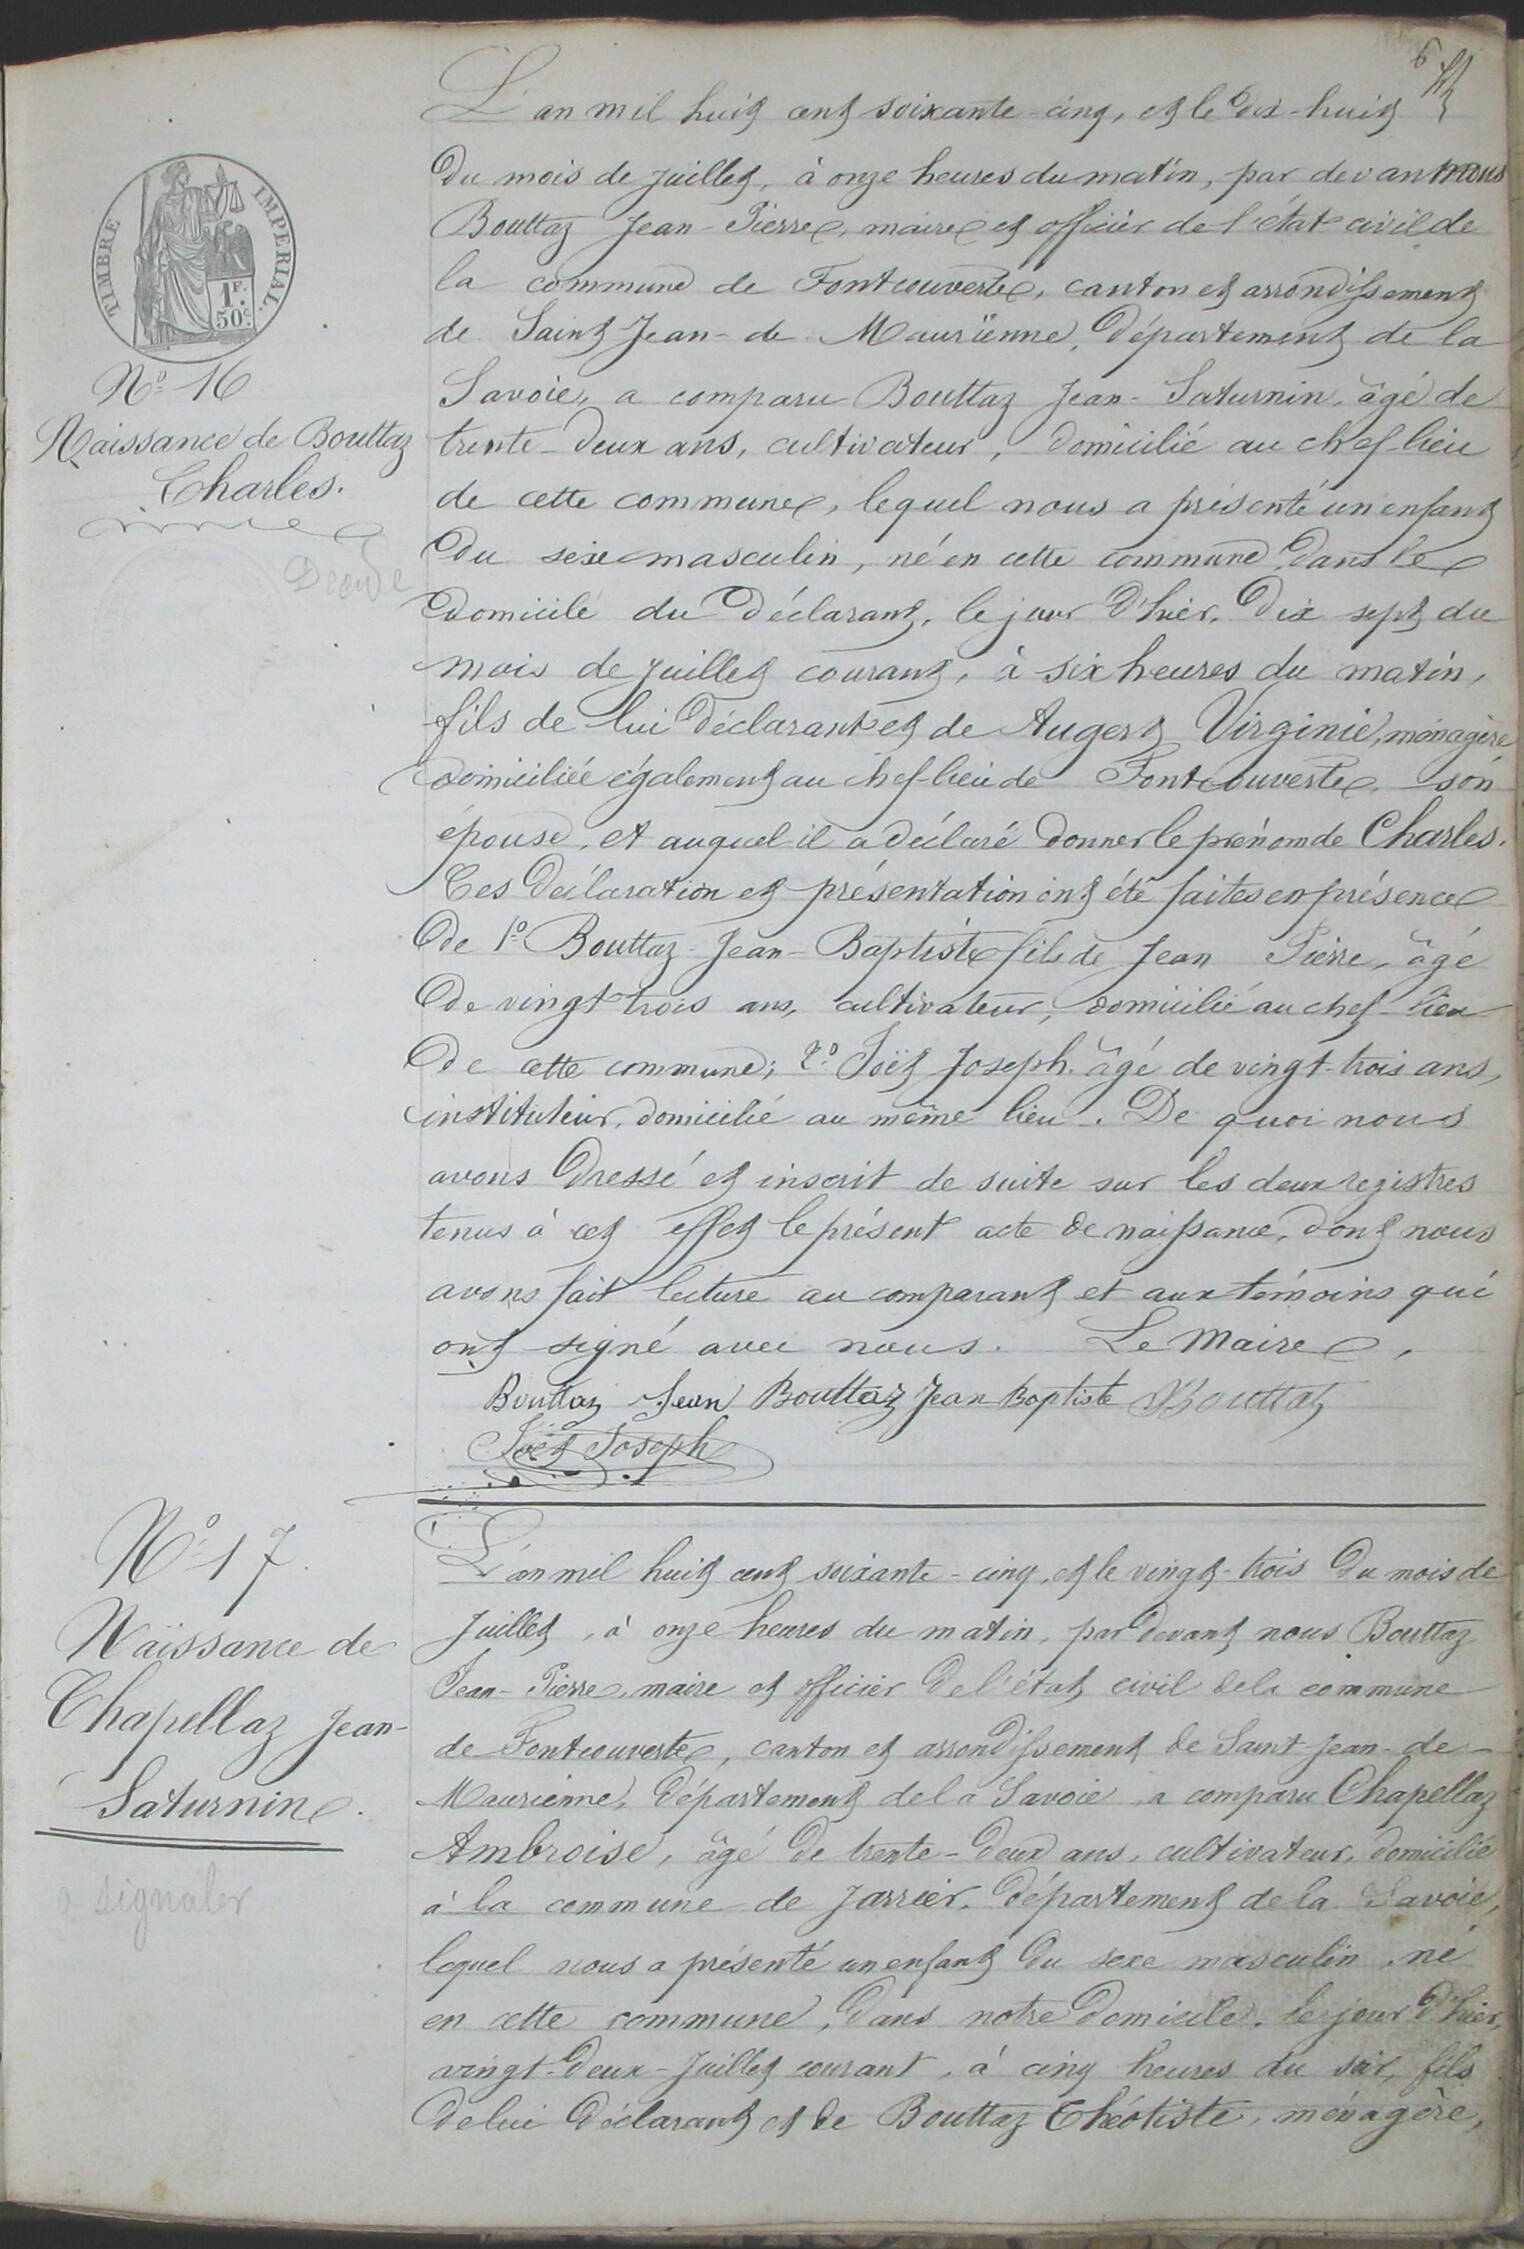 6
L'an mil huit cent soixante-cinq, et le dix-huit
du mois de juillet, à onze heures du matin, par devant nous
Bouttaz Jean-Pierre, maire et officier de l'état civil de
la commune de Fontcouverte, canton et arrondissement
de Saint Jean-de Maurienne, département de la
Savoie, a comparu Bouttaz Jean-Saturnin, âgé de
trente-deux ans, cultivateur, domicilié au chef-lieu
de cette commune, lequel nous a présenté un enfant
du sexe masculin, né en cette commune, dans le
domicile du déclarant, le jour d'hier, dix sept du
mois de juillet courant, à six heures du matin,
fils de lui déclarant et de Augert Virginie, ménagère
domiciliée également au chef-lieu de Fontcouverte, son
épouse, et auquel il a déclaré donner le prénom de Charles.
Ces déclaration et présentation ont été faites en présence
de 1º Bouttaz Jean-Baptiste fils de Jean Pierre, âgé
de vingt trois ans, cultivateur, domicilié au chef-lieu
de cette commune; 2º Joët Joseph âgé de vingt-trois ans,
instituteur, domicilié au même lieu. De quoi nous
avons dressé et inscrit de suite sur les deux registres
tenus à cet effet le présent acte de naissance, dont nous
avons fait lecture au comparant et aux témoins qui
ont signé avec nous. Le Maire,
Bouttaz Jean Bouttaz Jean Baptiste Bouttaz
Joët Joseph
TIMBRE IMPERIAL.
1F.
50c.
Nº 16
Naissance de Bouttaz
Charles.
Décédé
Nº 17.
Naissance de
Chapellaz Jean-
Saturnin.
à signaler
L'an mil huit cent soixante-cinq, et le vingt-trois du mois de
Juillet, à onze heures du matin, par devant nous Bouttaz
Jean-Pierre, maire et officier de l'état civil de la commune
de Fontcouverte, canton et arrondissement de Saint-Jean-de-
Maurienne, département de la Savoie, a comparu Chapellaz
Ambroise, âgé de trente-deux ans, cultivateur, domicilié
à la commune de Jarrier, département de la Savoie,
lequel nous a présenté un enfant du sexe masculin, né
en cette commune, dans notre domicile, le jour d'hier,
vingt-deux-Juillet courant, à cinq heures du soir, fils
de lui déclarant et de Bouttaz Théotiste, ménagère,